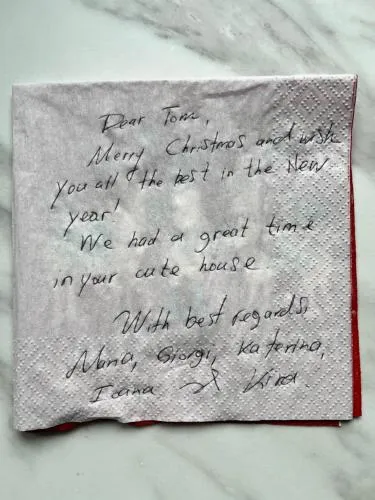 Dear Tom,
Merry Christmas and wish
you all the best in the New
year!
We had a great time
in your cute house.
With best regards,
Maria, Giorgi, Katerina,
Ioana & Kira